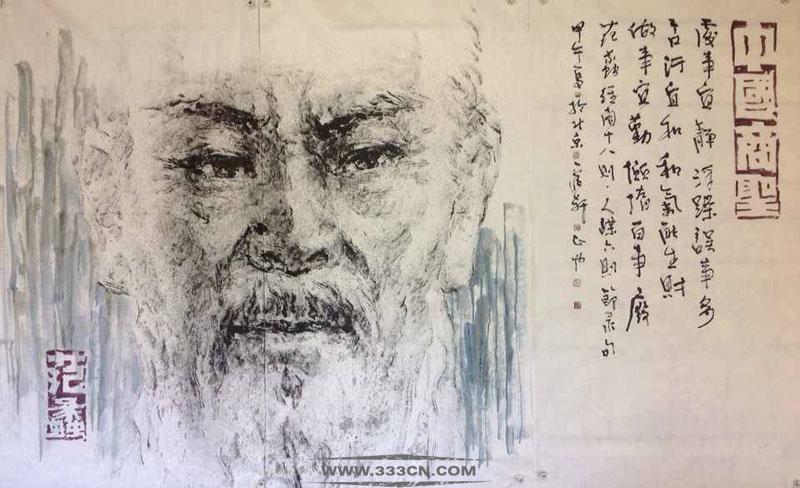 中國商聖
處事宜靜浮躁誤事多
言行宜和和氣能生財
做事宜勤懶惰百事廢
范蠡經商十八則·人謀六則節录句
甲午夏日於北京
范蠡
WWW.333CN.COM